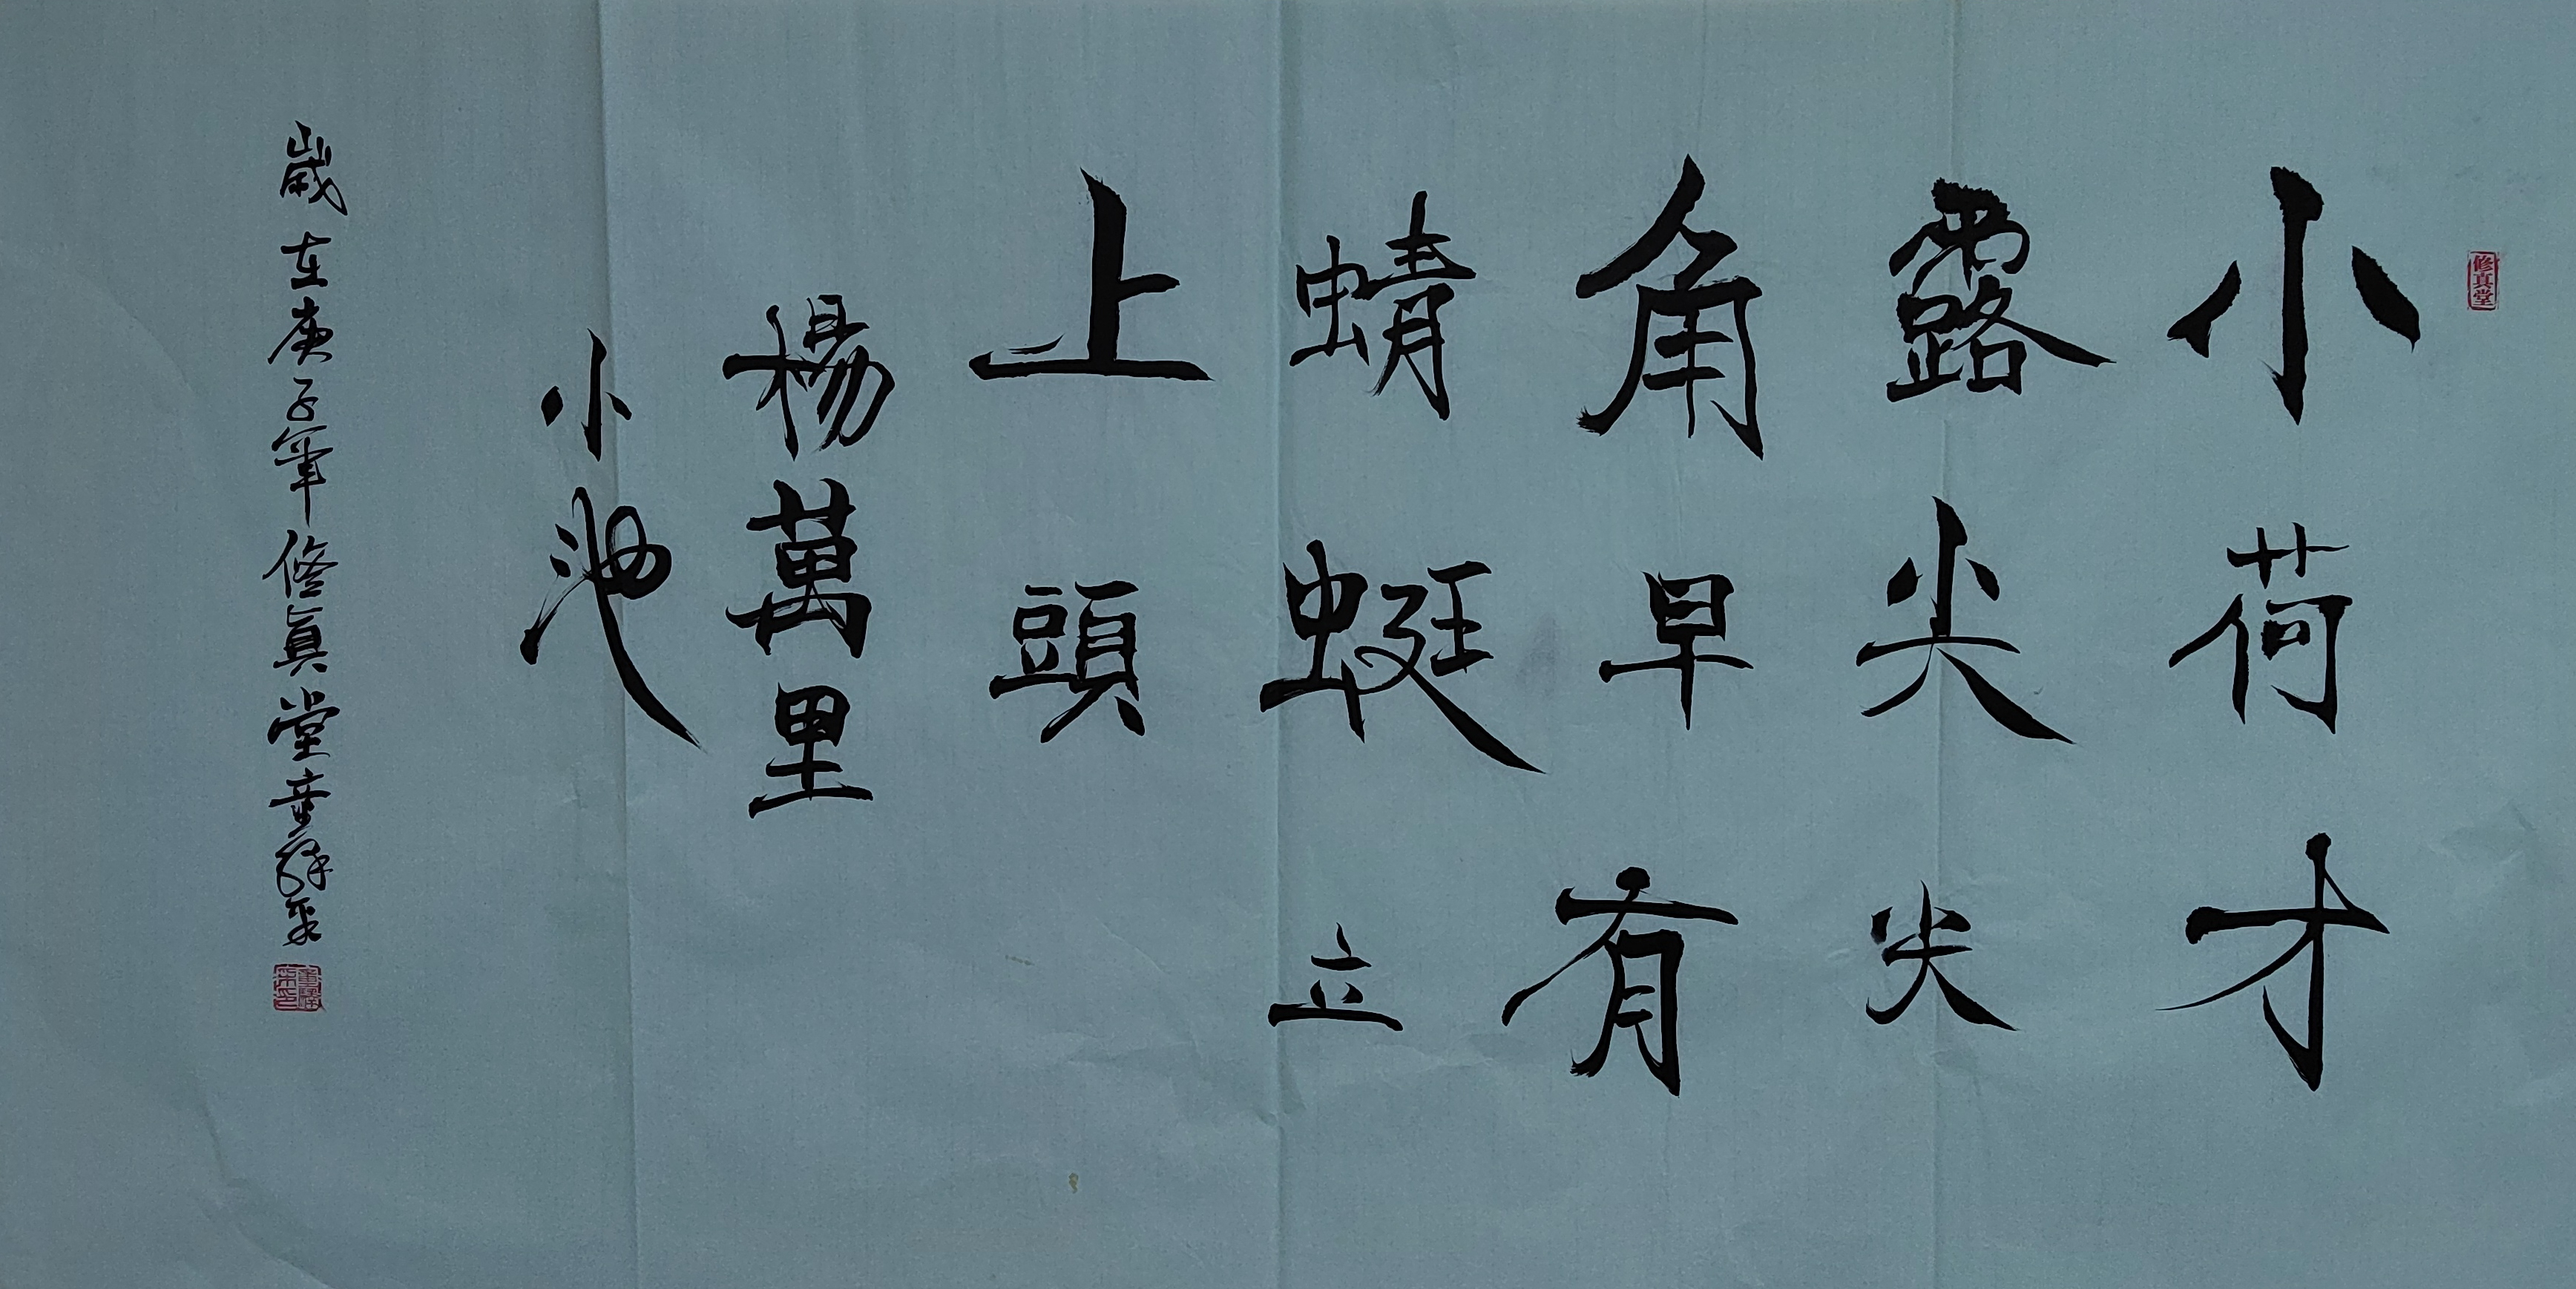 修真堂
小荷才
露尖尖
角早有
蜻蜓立
上頭
楊萬里
小池
歲在庚子年修真堂童